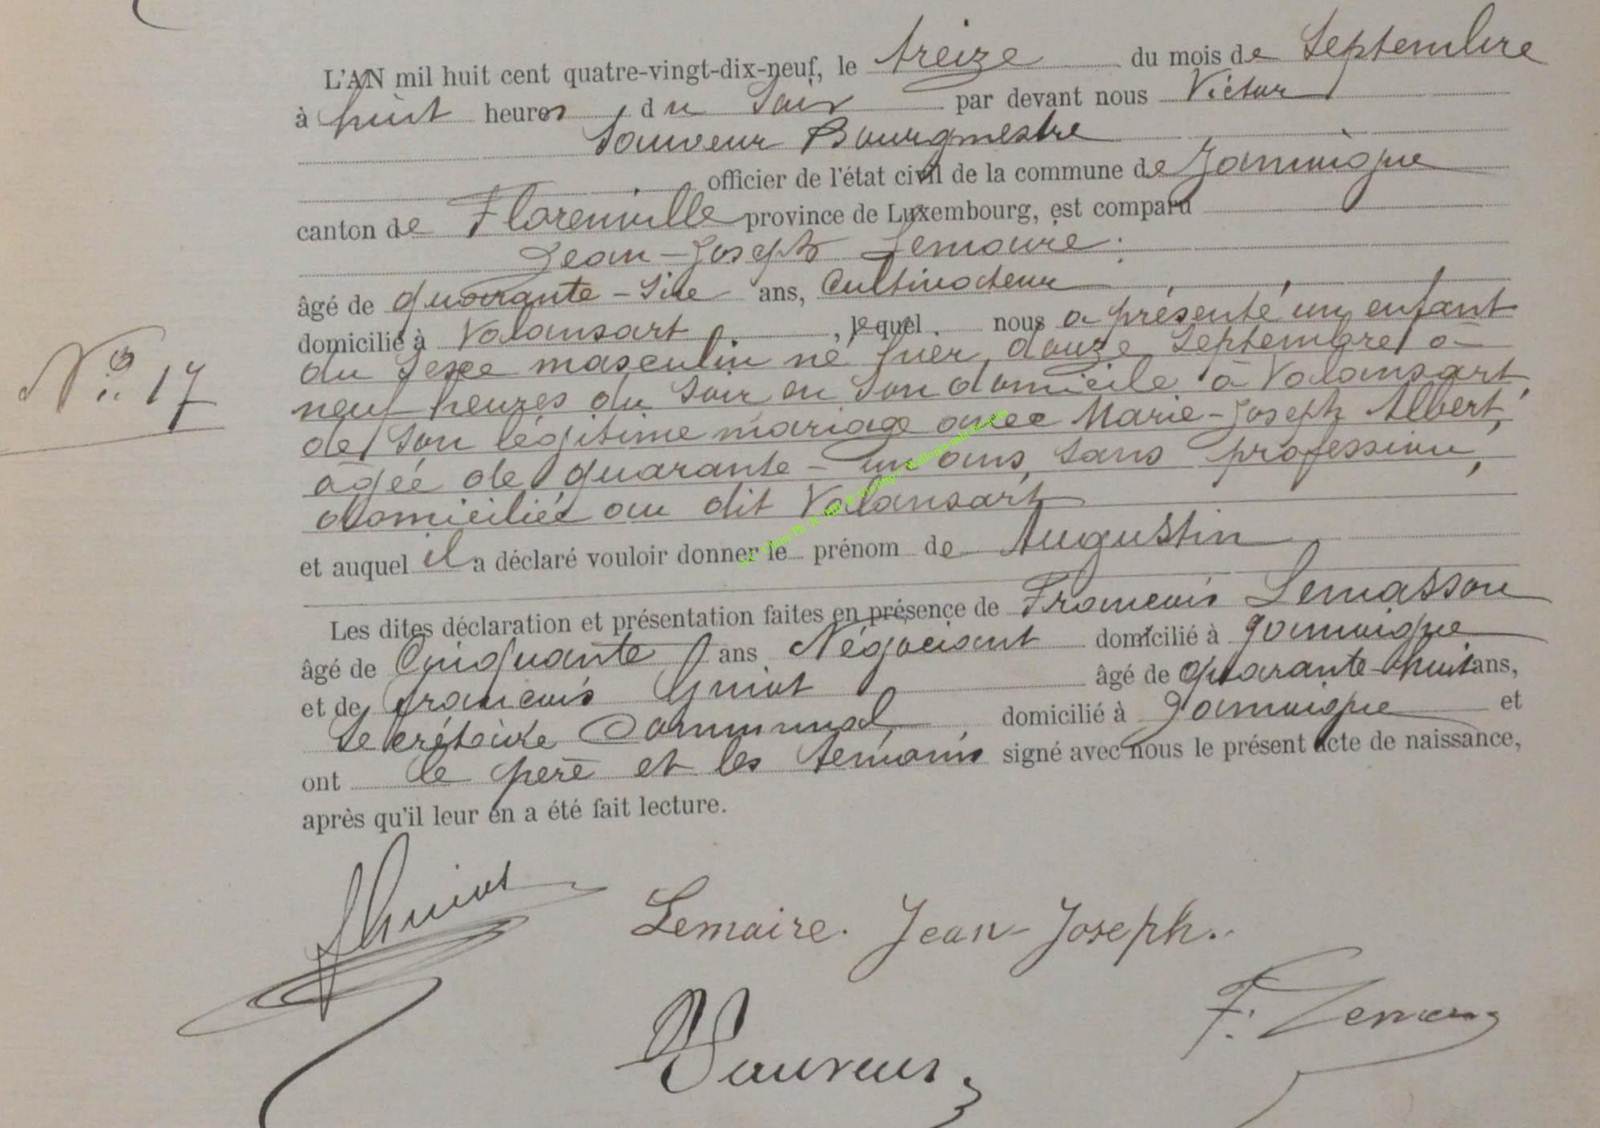 L'AN mil huit cent quatre-vingt-dix-neuf, le treize du mois de Septembre
à huit heures du Soir par devant nous Victor
Sauveur Bourgmestre
officier de l'état civil de la commune de Jamoigne
canton de Florenville province de Luxembourg, est comparu
Jean-Joseph Lemaire.
âgé de quarante-six ans, Cultivateur
domicilié à Valansart, lequel nous a présenté un enfant
du Sexe masculin né hier, douze Septembre à
N° 17
neuf heures du Soir en Son domicile à Valansart,
de Son légitime mariage avec Marie-Joseph Albert,
âgée de quarante-un ans, sans profession,
domiciliée au dit Valansart
et auquel il a déclaré vouloir donner le prénom de Augustin
Les dites déclaration et présentation faites en présence de François Lemasson
âgé de Cinquante ans Négociant domicilié à Jamoigne
et de françois Guiot âgé de quarante-huit ans,
Secrétaire Communal domicilié à Jamoigne et
ont le père et les témoins signé avec nous le présent acte de naissance,
après qu'il leur en a été fait lecture.
Lemaire. Jean-Joseph.
VSauveur